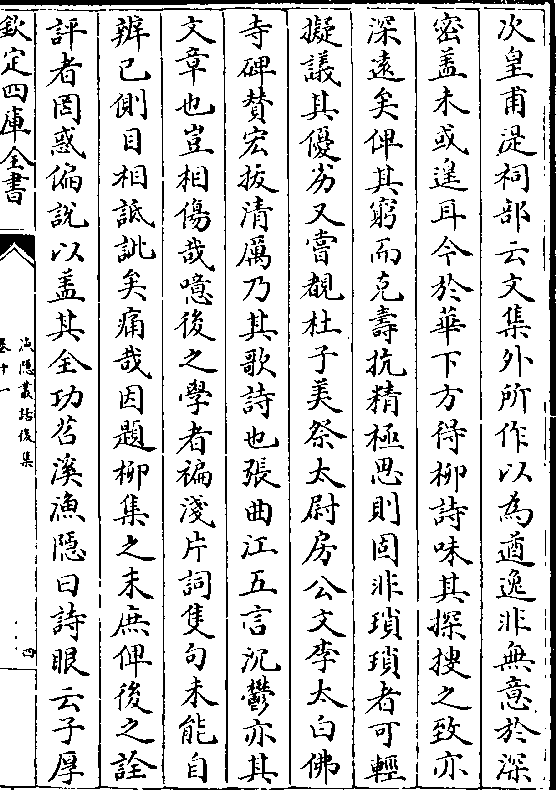 次皇甫湜祠部云文集外所作以為遒逸非無意於深
密蓋未或遑耳今於華下方得柳詩味其探搜之致亦
深遠矣俾其窮而克壽抗精極思則固非瑣瑣者可輕
擬議其優劣又嘗覩杜子美祭太尉房公文李太白佛
寺碑贊宏拔清厲乃其歌詩也張曲江五言沉鬱亦其
文章也豈相傷哉噫後之學者褊淺片詞隻句未能自
辨已側目相詆訾矣痛哉因題柳集之末庶俾後之詮
評者罔惑偏說以蓋其全功苕溪漁隱曰詩眼云子厚
欽定四庫全書
漁隱叢話後集
卷十一
四